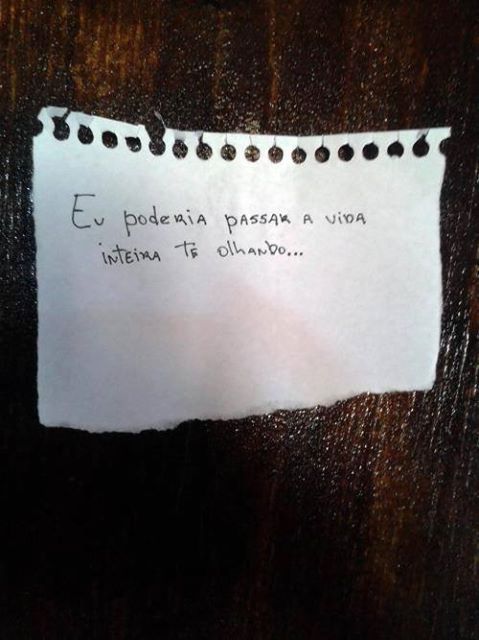 Eu poderia passar a vida
inteira te olhando...